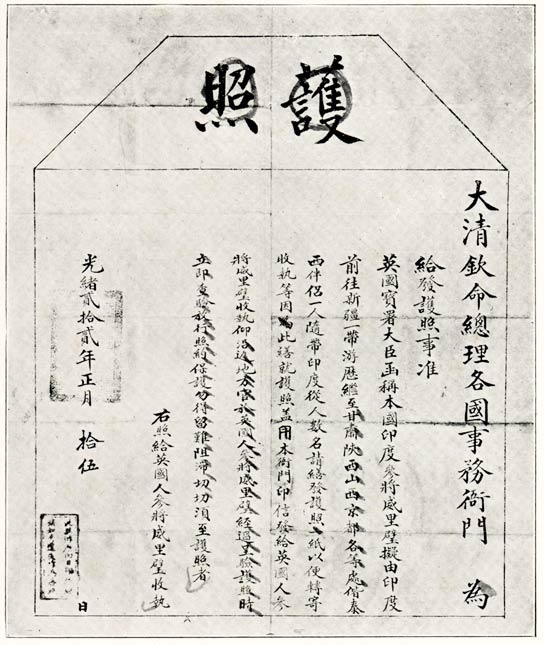 護照
大清欽命總理各國事務衙門 為
給發護照事准
英國竇署大臣函稱本國印度參將威里璧擬由印度
前往新疆一帶游歷繼至甘肅陝西山西京都各等處偕泰
西伴侶一人隨帶印度從人數名請繕發護照一紙以便轉寄
收執等因為此繕就護照蓋用本衙門印信發給英國人參
將威里璧收執仰沿途地方官於英國人參將威里璧經過呈驗護照時
立即查驗放行照約保護勿得留難阻滯切切須至護照者
右照給英國人參將威里璧收執
光緒貳拾貳年正月 拾伍 日